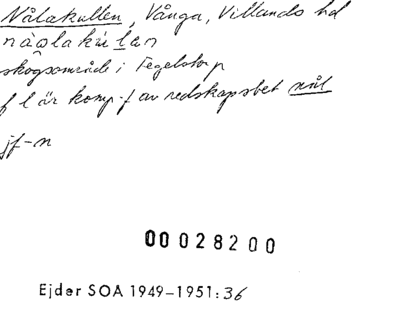 Nålakullen, Vånga, Villands hd
skogsområde i Tegelstorp
f l är komp.-f av redskapsbet nål
jf-n
00 028200
Ejder SOA 1949–1951:36